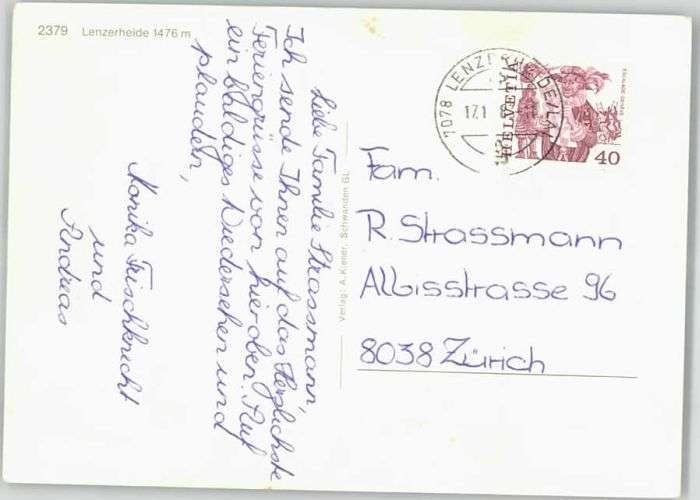 2379 Lenzerheide 1476 m
Liebe Familie Strassmann,
Ich sende Ihnen auf das Herzlichste
Feriengrüsse von hier oben. Auf
ein baldiges Wiedersehen und
plauden,
Monika Frischknecht
und
Andreas
Verlag: A. Kiener, Schwanden GL
7078 LENZERHEIDE/LAI
17.1
HELVETIA
40
Fam.
R. Strassmann
Albisstrasse 96
8038 Zürich